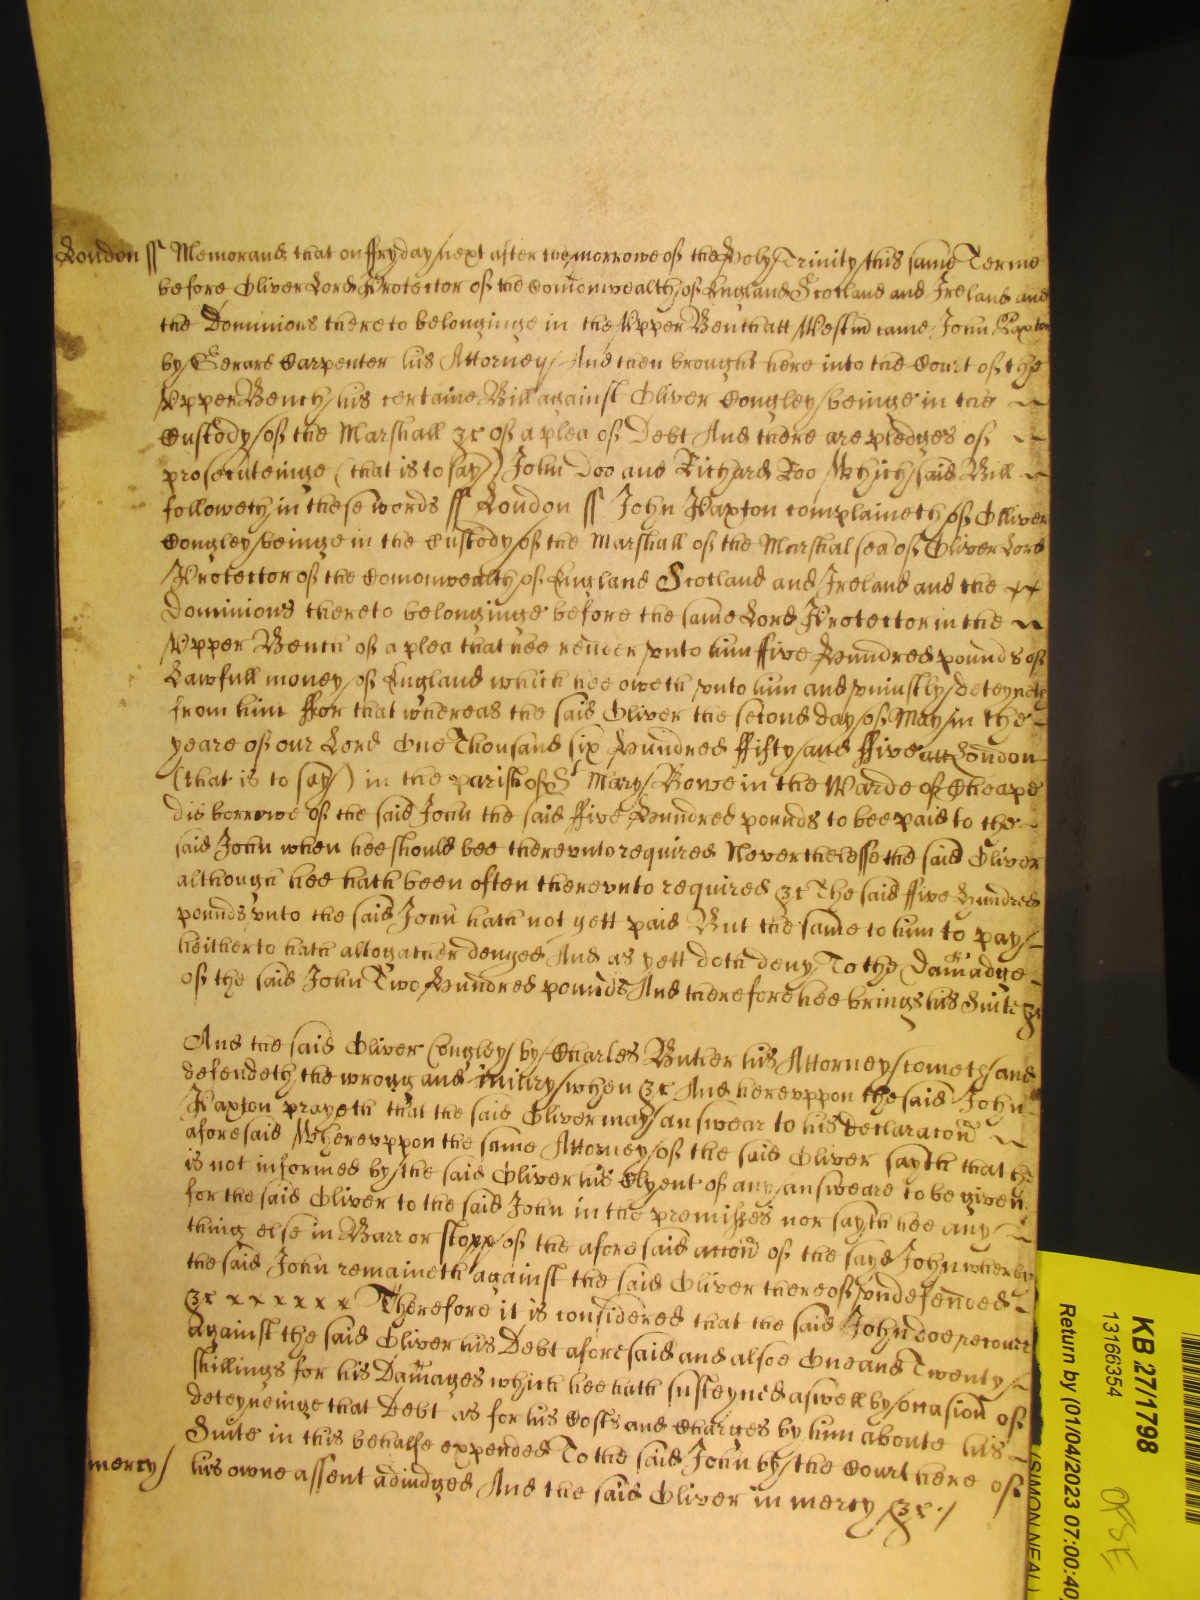 London ss Memorand that on ffryday next after the morrowe of the Holy Trinity this same Terme
before Oliver Lord Protector of the Comonwealth of England Scotland and Ireland and
the Dominions thereto belonginge in the Upper Bench att Westm came John Paxton
by Gerard Carpenter his Attorney And then brought here into the Court of the
Upper Bench his certaine Bill against Oliver Congley beinge in the
Custody of the Marshall &c of a plea of Debt And there are pledges of
prosecuteinge (that is to say) John Doo and Richard Roo Which said Bill
followeth in these words ss London ss John Paxton complaineth of Olliver
Congley beinge in the Custody of the Marshall of the Marshalsea of Oliver Lord
Protector of the Comonwealth of England Scotland and Ireland and the
Dominions thereto belonginge before the same Lord Protector in the
Upper Bench of a plea that hee render vnto him ffive Hundred pounds of
Lawfull money of England which hee oweth vnto him and vniustly deteyneth
from him ffor that whereas the said Oliver the second day of May in the
yeare of our Lord One Thousand six Hundred ffifty and ffive att London
(that is to say) in the parish of St Mary Bowe in the Warde of Cheape
did borrowe of the said John the said ffive Hundred pounds to bee paid to the
said John when hee should bee therevnto required Neverthelesse the said Oliver
although hee hath been often therevnto required &c The said ffive Hundred
pounds vnto the said John hath not yett paid But the same to him to pay
heitherto hath altogather denyed And as yett doth deny To the Damadge
of the said John Two Hundred pounds And therefore hee brings his Suite &c
And the said Oliver Congley by Charles Butler his Attorney cometh and
defendeth the wrong and iniury when &c And herevppon the said John
Paxton prayeth that the said Oliver may answear to his declaracon
aforesaid Wherevppon the same Attorney of the said Oliver sayth that he
is not informed by the said Oliver his Clyent of any answeare to be given
for the said Oliver to the said John in the premisses nor sayth hee any
thing else in Barr or stopp of the aforesaid accon of the sayd John wherby
the said John remaineth against the said Oliver thereof vndefended
&c x x x x x x Therefore it is considered that the said John doe recover
against the said Oliver his Debt aforesaid and alsoe One and Twenty
shillings for his Damages which hee hath susteyned aswell by occasion of
deteyneinge that Debt as for his Costs and Charges by him aboute his
Suite in this behalfe expended To the said John by the Court here of
mercy his owne assent adiudged And the said Oliver in mercy &c
KB 27/1798
13166354
Return by (01/04/2023 07:00:40)
(SIMON NEAL)